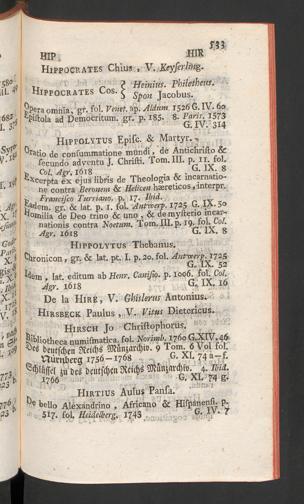 533
HIP HIR
HIPPOCRATES Chius, V. Keyserling.
HIPPOCRATES Cos. { Heinius. Philotheus.
Spon Jacobus.
Opera omnia, gr. fol. Venet. ap. Aldum. 1526 G. IV. 60
Epistola ad Democritum. gr. p. 185. 8. Paris. 1573
G. IV. 314
HIPPOLYTUS Episc. & Martyr.
Oratio de consummatione mundi, de Antichristo &
secundo adventu J. Christi. Tom. III. p. 11. fol.
Col. Agr. 1618 G. IX. 8
Excerpta ex ejus libris de Theologia & incarnatio-
ne contra Beronem & Helicen hæreticos, interpr.
Francisco Turriano. p. 17. Ibid.
Eadem. gr. & lat. p. 1. fol. Antwerp. 1725 G. IX. 50
Homilia de Deo trino & uno, & de mysterio incar-
nationis contra Noetum. Tom. III. p. 19. fol. Col.
Agr. 1618 G. IX. 8
HIPPOLYTUS Thebanus.
Chronicon, gr. & lat. pt. I. p. 20. fol. Antwerp. 1725
G. IX. 52
Idem, lat. editum ab Henr. Canisio. p. 1006. fol. Col.
Agr. 1618 G. IX. 16
De la HIRE, V. Ghislerus Antonius.
HIRSBECK Paulus, V. Vitus Dietericus.
HIRSCH Jo Christophorus.
Bibliotheca numismatica. fol. Norimb. 1760 G. XIV. 46
Des deutschen Reichs Münzarchiv. 9 Tom. 6 Vol. fol.
Nürnberg 1756–1768 G. XI. 74 a–f.
Schlüssel zu des deutschen Reichs Münzarchiv. 4. Ibid.
1766 G. XI. 74 g.
HIRTIUS Aulus Pansa.
De bello Alexandrino, Africano & Hispaniensi. p.
517. fol. Heidelberg. 1743 G. IV. 7